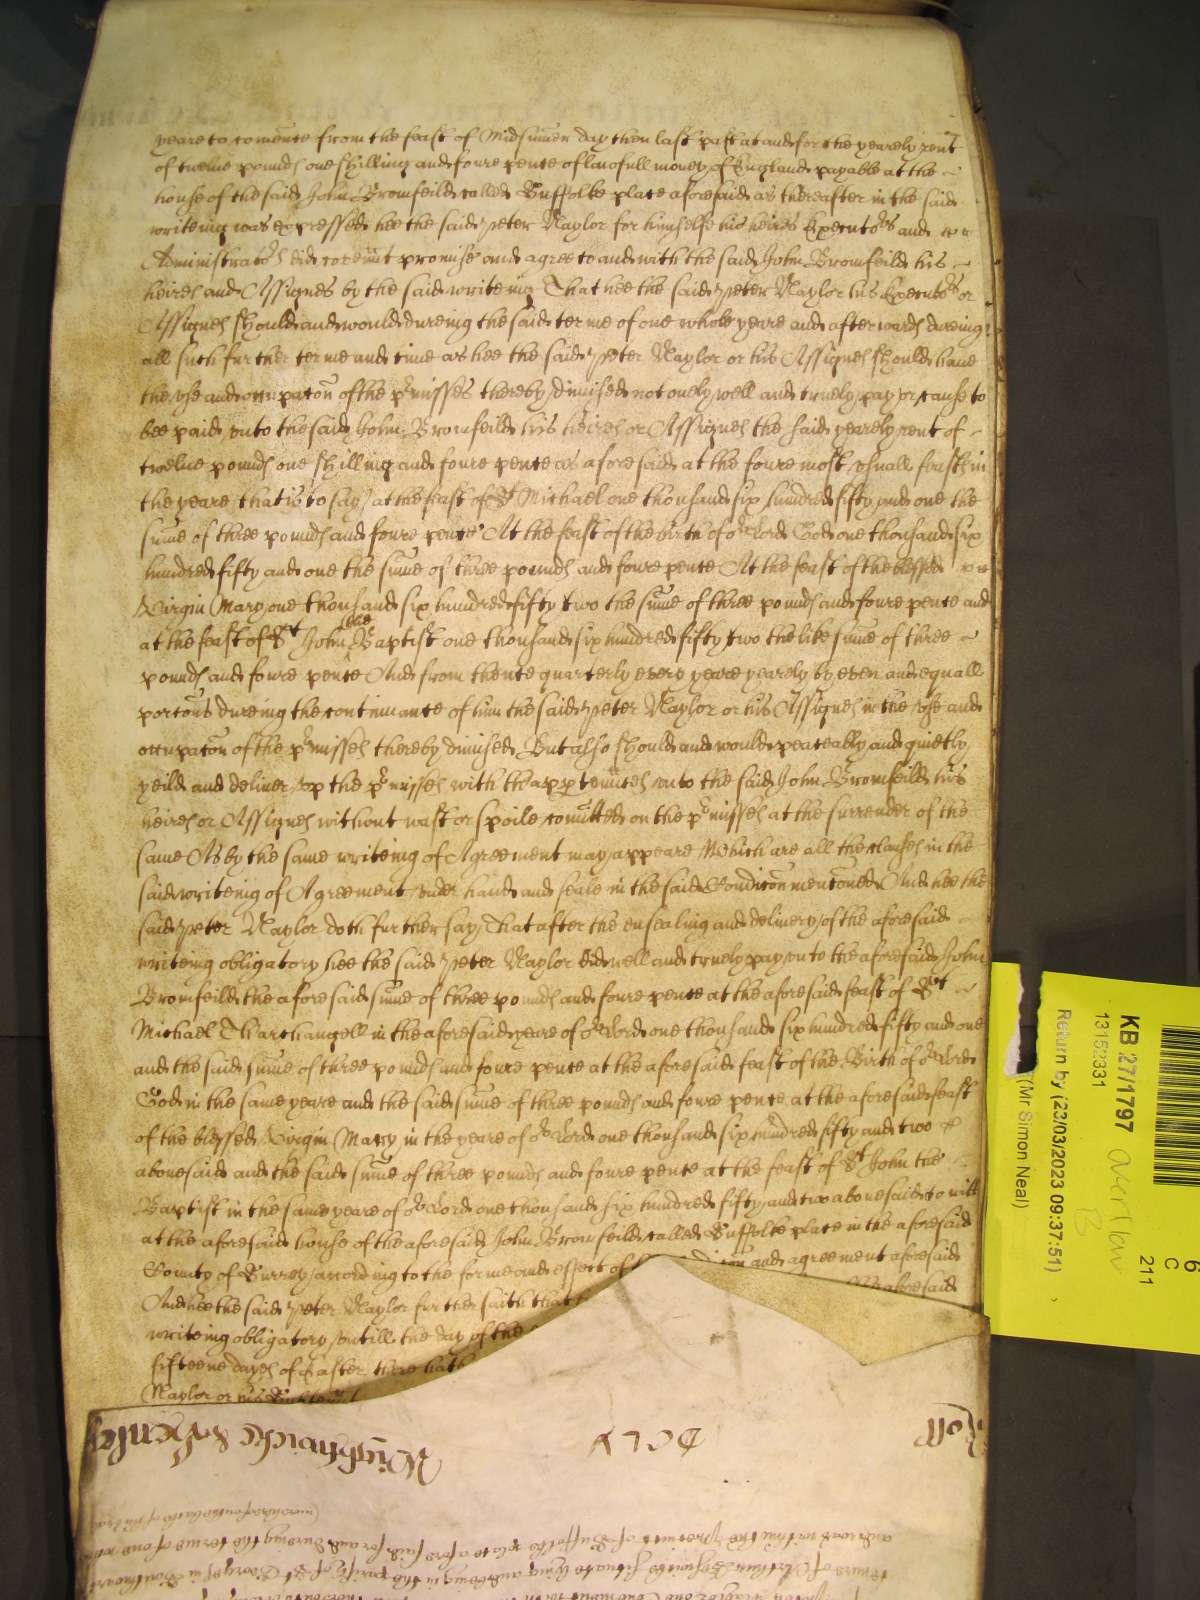 yeare to comence from the feast of Midsumer day then last past at and for the yearely rent
of twelue pounds one shilling and foure pence of lawfull money of England payable at the
house of the said John Bromfeild called Suffolke place aforesaid as thereafter in the said
writeing was expressed hee the said Peter Naylor for himselfe his heires Executors and
Administrators did covenant promise and agree to and with the said John Bromfeild his
heires and Assignes by the said writeing That hee the said Peter Naylor his Executors or
Assignes should and would dureing the said terme of one whole yeare and afterwards dureing
all such further terme and time as hee the said Peter Naylor or his Assignes should have
the vse and occupacon of the prmisses thereby dimised not onely well and truely pay or cause to
bee paid vnto the said John Bromfeild his heires or Assignes the said yearely rent of
twelue pounds one shilling and foure pence as aforesaid at the foure most vsuall feasts in
the yeare that is to say at the feast of St Michael one thousand six hundred fifty and one the
sume of three pounds and foure pence At the feast of the birth of or Lord God one thousand six
hundred fifty and one the sume of three pounds and foure pence At the feast of the blessed
Virgin Mary one thousand six hundred fifty two the sume of three pounds and foure pence and
at the feast of St John the Baptist one thousand six hundred fifty two the like sume of three
pounds and foure pence And from thence quarterly every yeare yearely by even and equall
porcons dureing the continuance of him the said Peter Naylor or his Assignes in the vse and
occupacon of the prmisses thereby dimised But also should and would peaceably and quietly
yeild and deliver vp the prmisses with thappurtenncs vnto the said John Bromfeild his
heires or Assignes without wast or spoile comitted on the prmisses at the surrender of the
same As by the same writeing of Agreement may appeare Which are all the clauses in the
said writeing of Agreement vnder hand and seale in the said Condicon menconed And hee the
said Peter Naylor doth further say That after the ensealing and delivery of the aforesaid
writeing obligatory hee the said Peter Naylor did well and truely pay vnto the aforesaid John
Bromfeild the aforesaid sume of three pounds and foure pence at the aforesaid feast of St
Michael Tharchangell in the aforesaid yeare of or Lord one thousand six hundred fifty and one
and the said sume of three pounds and foure pence at the aforesaid feast of the Birth of or Lord
God in the same yeare and the said sume of three pounds and foure pence at the aforesaid feast
of the blessed Virgin Mary in the yeare of or Lord one thousand six hundred fifty and two
abovesaid and the said sume of three pounds and foure pence at the feast of St John the
Baptist in the same yeare of or Lord one thousand six hundred fifty and two abovesaid to witt
at the aforesaid house of the aforesaid John Bromfeild called Suffolke place in the aforesaid
County of Surrey according to the forme and effect of and agreement aforesaid
And hee the said Peter Naylor further saith that aforesaid
writeing obligatory vntill the day of the
fifteene dayes of Easter there hath
Naylor or his
Wightwicke &
Roll
KB 27/1797
13152331
Return by (23/03/2023 09:37:51)
(Mr Simon Neal)
overflow
B
6
C
211